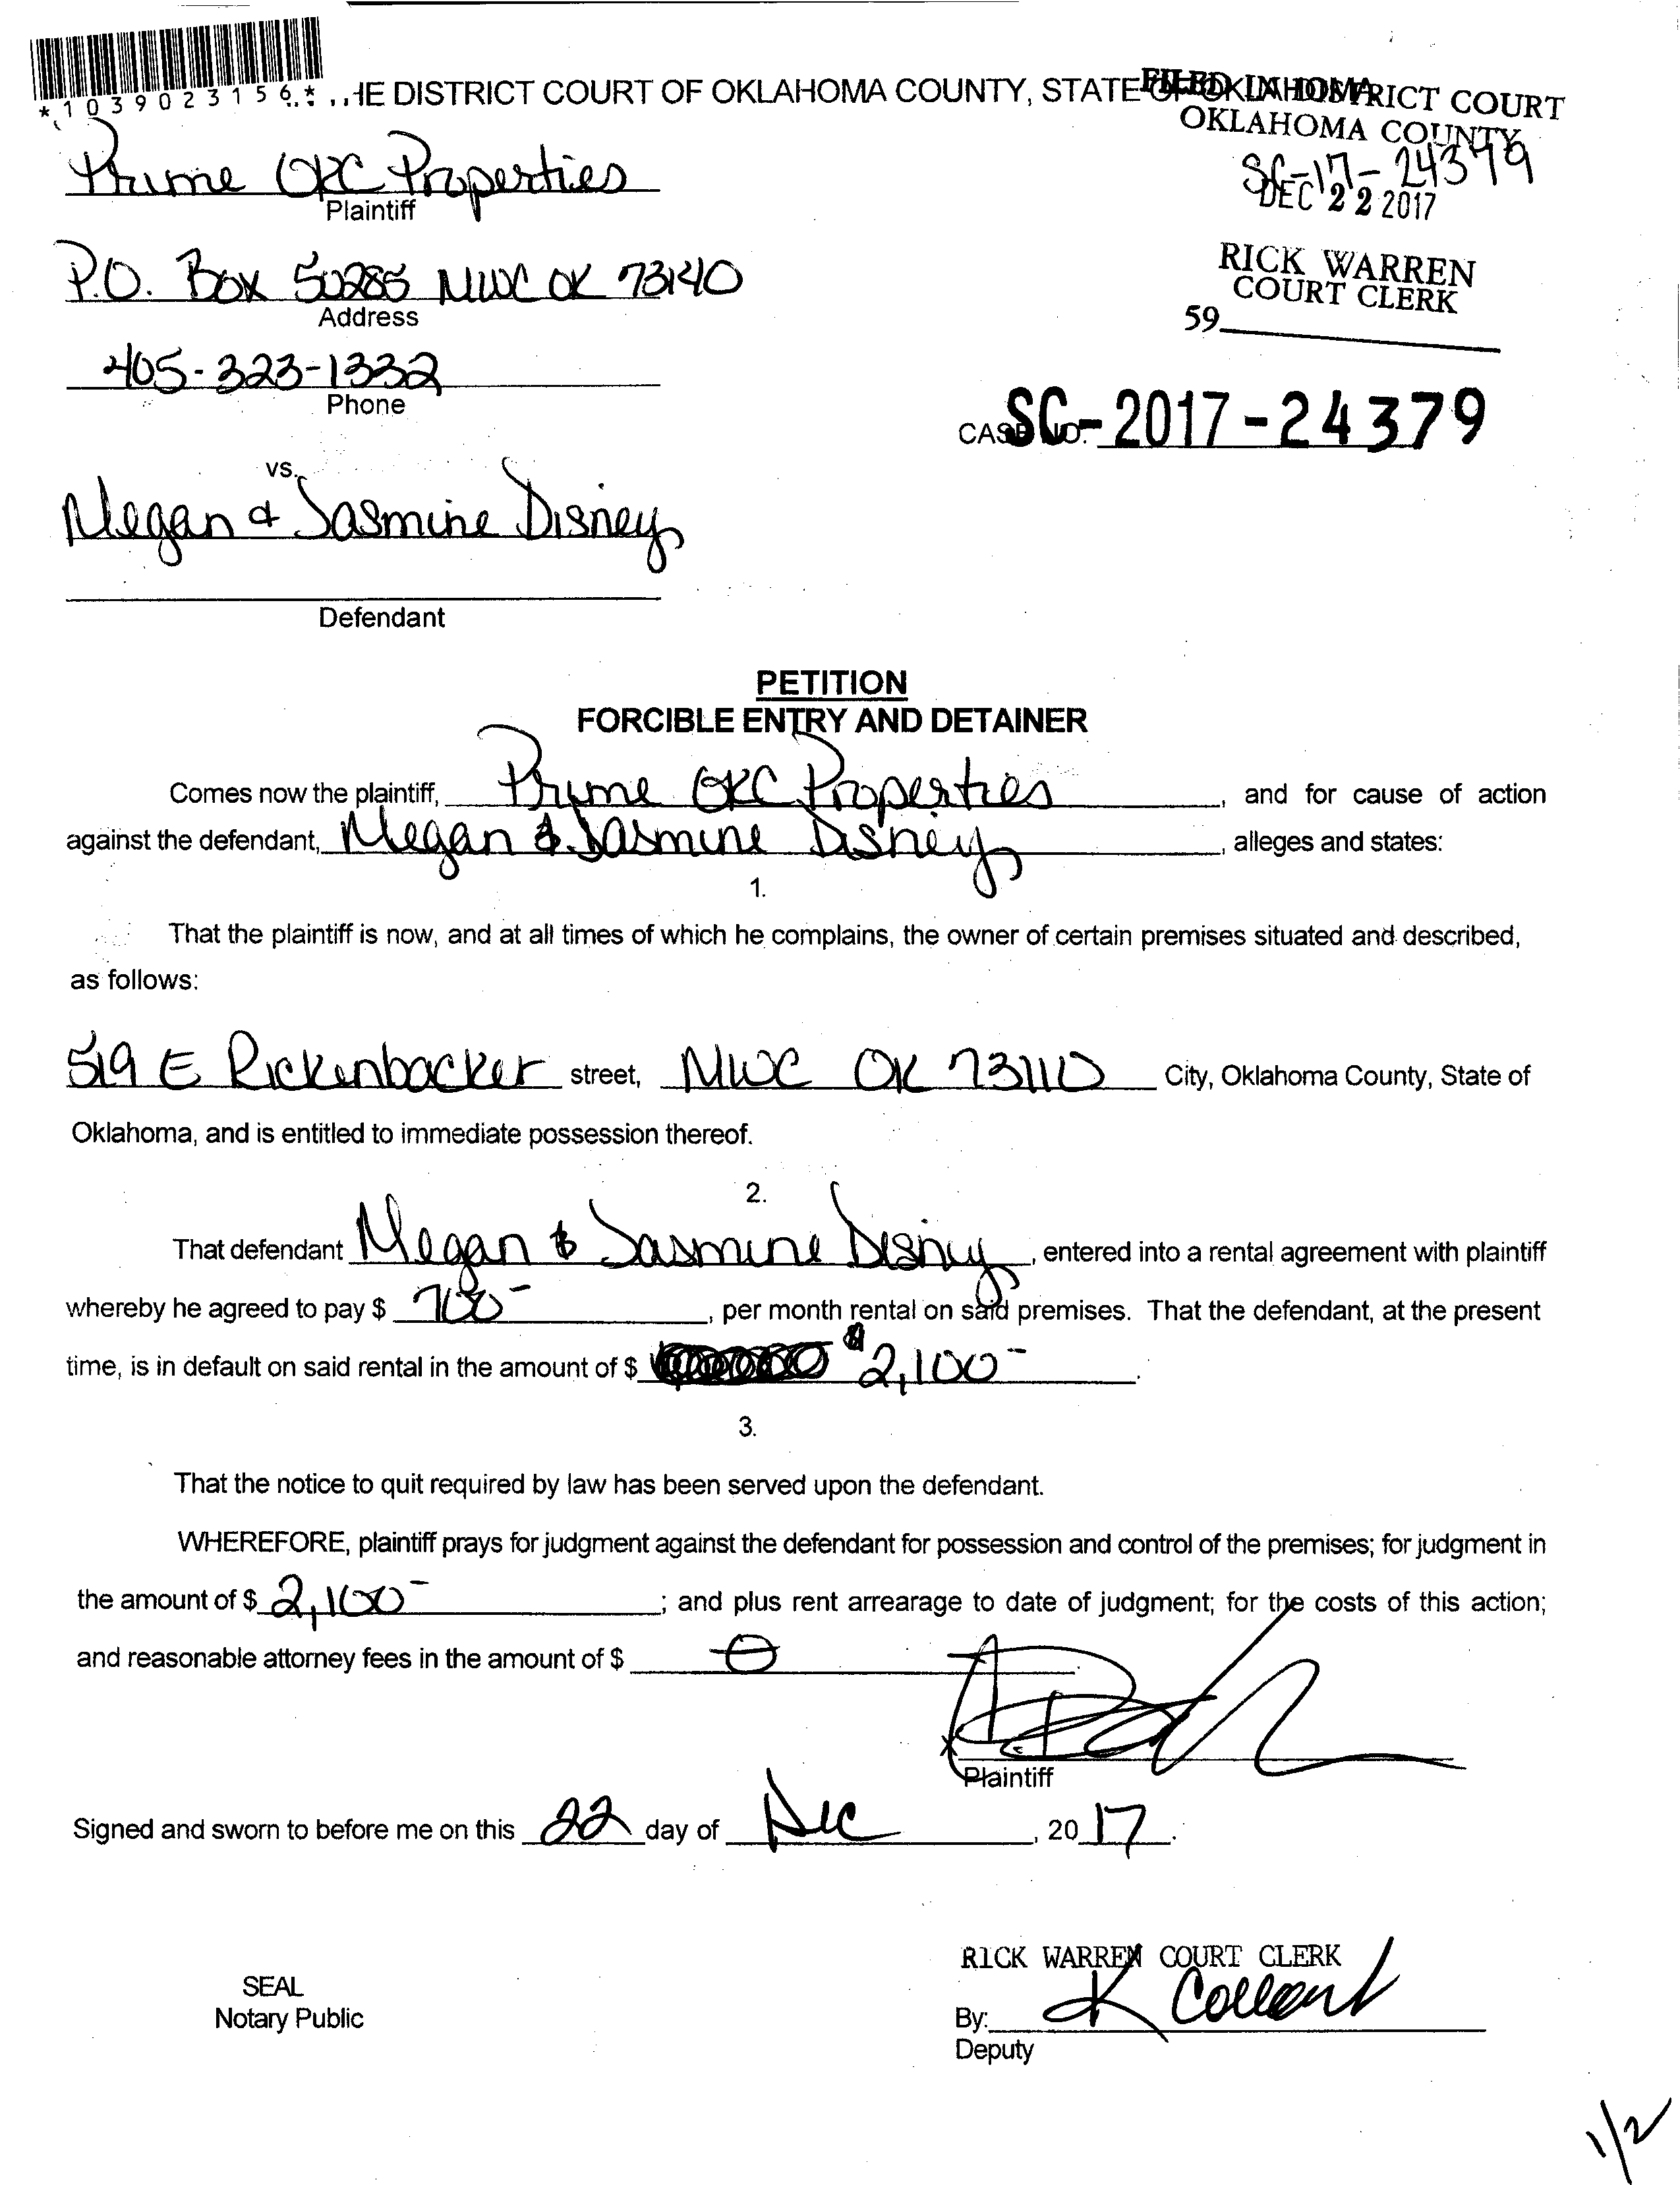 *1039023156*
HE DISTRICT COURT OF OKLAHOMA COUNTY, STATE OF OKLAHOMA
FILED IN DISTRICT COURT
OKLAHOMA COUNTY
SC-17-24379
DEC 22 2017
RICK WARREN
COURT CLERK
59
Prime OKC Properties
Plaintiff
P.O. Box 50285 MWC OK 73140
Address
405-323-1332
Phone
CASE NO. SC-2017-24379
vs.
Megan & Jasmine Disney
Defendant
PETITION
FORCIBLE ENTRY AND DETAINER
Comes now the plaintiff, Prime OKC Properties, and for cause of action
against the defendant, Megan & Jasmine Disney, alleges and states:
1.
That the plaintiff is now, and at all times of which he complains, the owner of certain premises situated and described,
as follows:
519 E Rickenbacker street, MWC OK 73110 City, Oklahoma County, State of
Oklahoma, and is entitled to immediate possession thereof.
2.
That defendant Megan & Jasmine Disney, entered into a rental agreement with plaintiff
whereby he agreed to pay $ 700-, per month rental on said premises. That the defendant, at the present
time, is in default on said rental in the amount of $ $2,100-.
3.
That the notice to quit required by law has been served upon the defendant.
WHEREFORE, plaintiff prays for judgment against the defendant for possession and control of the premises; for judgment in
the amount of $ 2,100-; and plus rent arrearage to date of judgment; for the costs of this action;
and reasonable attorney fees in the amount of $ 0.
Plaintiff
Signed and sworn to before me on this 22 day of Dec, 2017.
RICK WARREN COURT CLERK
SEAL
Notary Public
By: K
Deputy
1/2